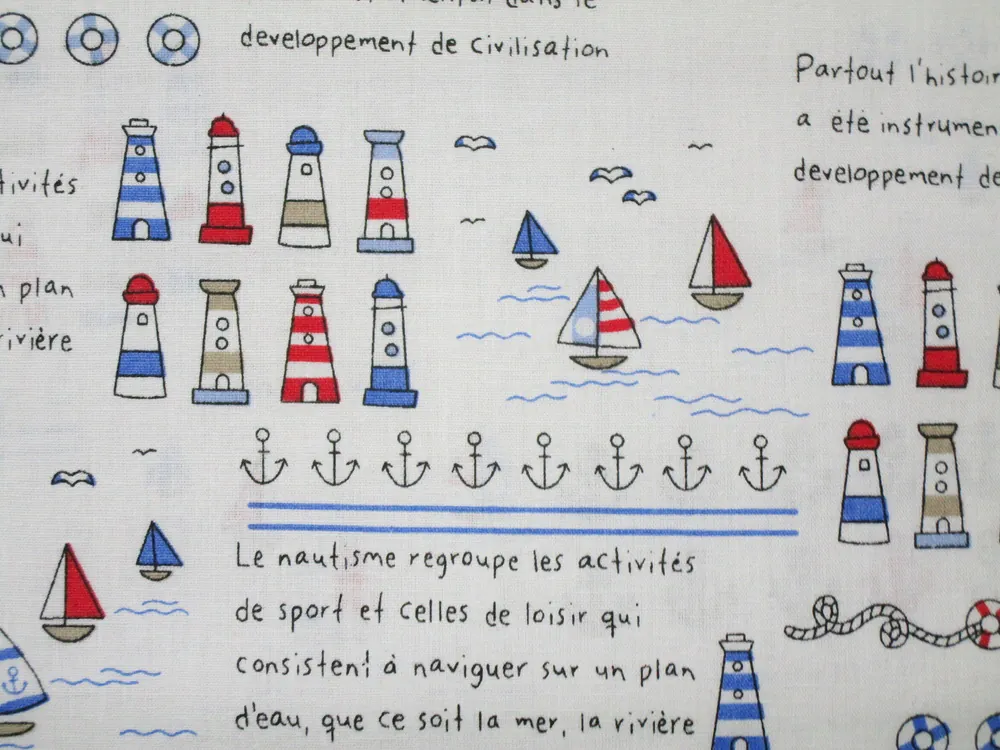 dans le
developpement de Civilisation
Partout l'histoir
a été instrumen
developpement de
tivités
ui
n plan
rivière
Le nautisme regroupe les activités
de sport et celles de loisir qui
consistent à naviguer sur un plan
d'eau, que ce soit la mer, la rivière